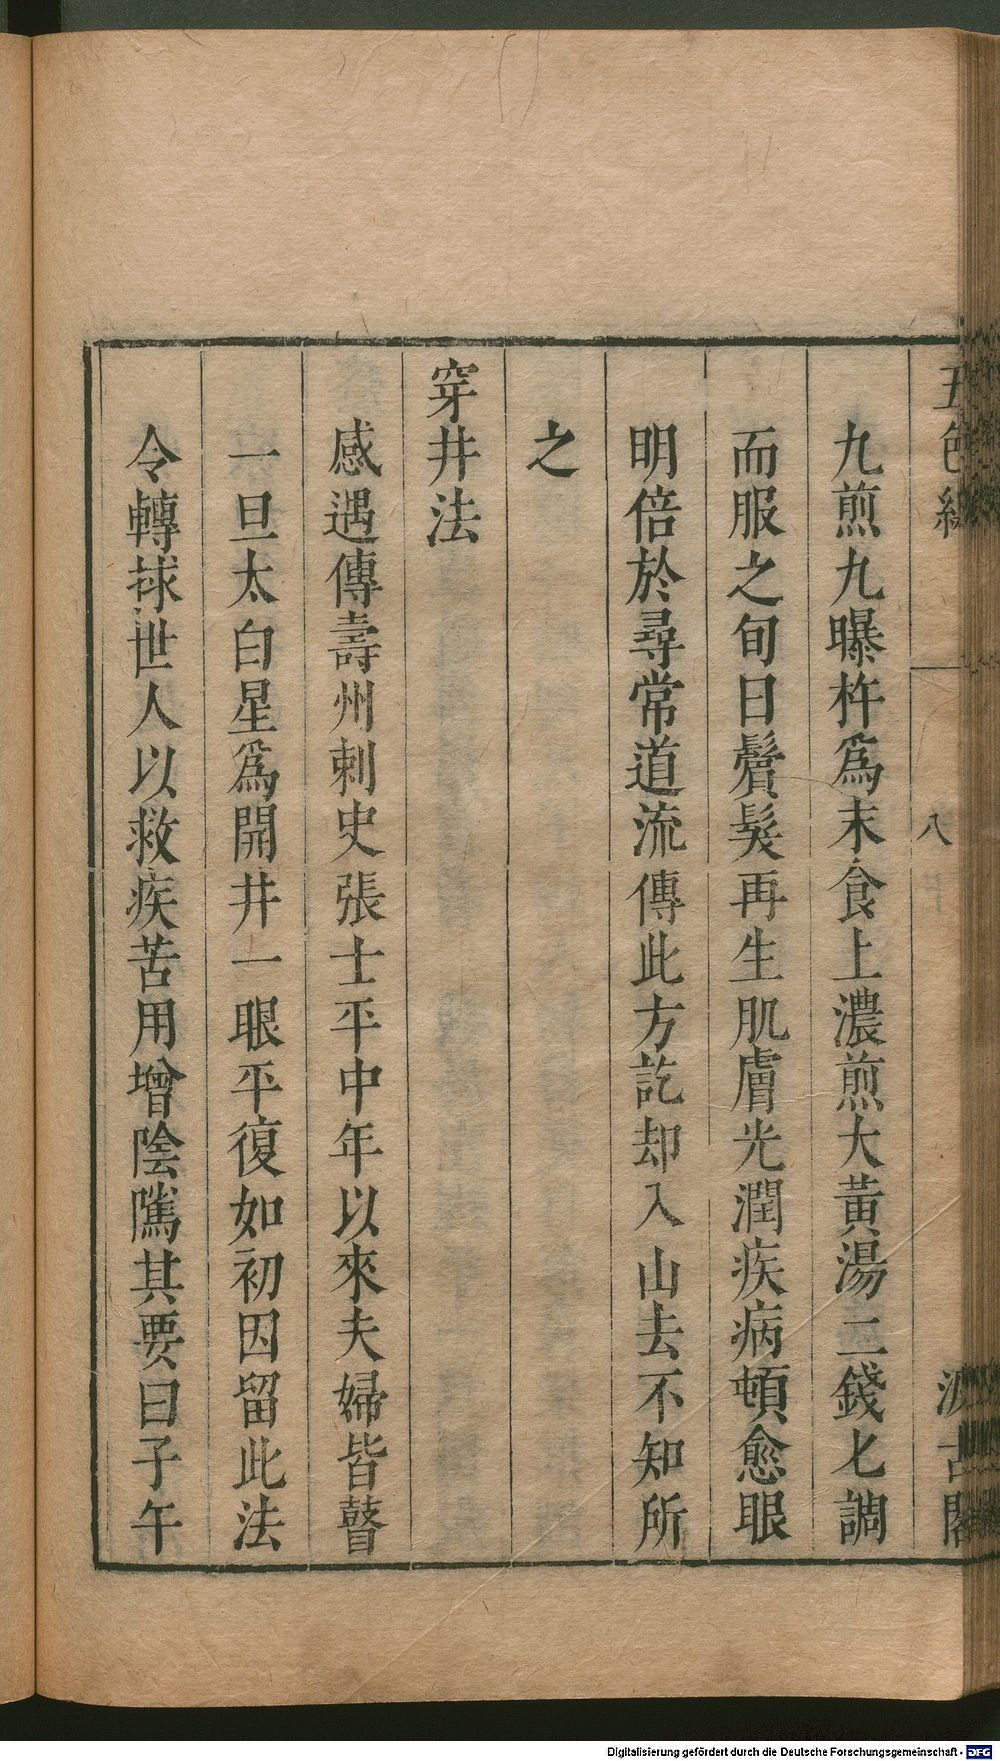 五色線
八
汲古閣
九煎九曝杵爲末食上濃煎大黃湯二錢七調
而服之旬日鬢髮再生肌膚光潤疾病頓愈眼
明倍於尋常道流傳此方訖却入山去不知所
之
穿井法
感遇傳壽州刺史張士平中年以來夫婦皆瞽
一旦太白星爲開井一眼平復如初因留此法
令轉捄世人以救疾苦用增陰騭其要曰子午
Digitalisierung gefördert durch die Deutsche Forschungsgemeinschaft - DFG